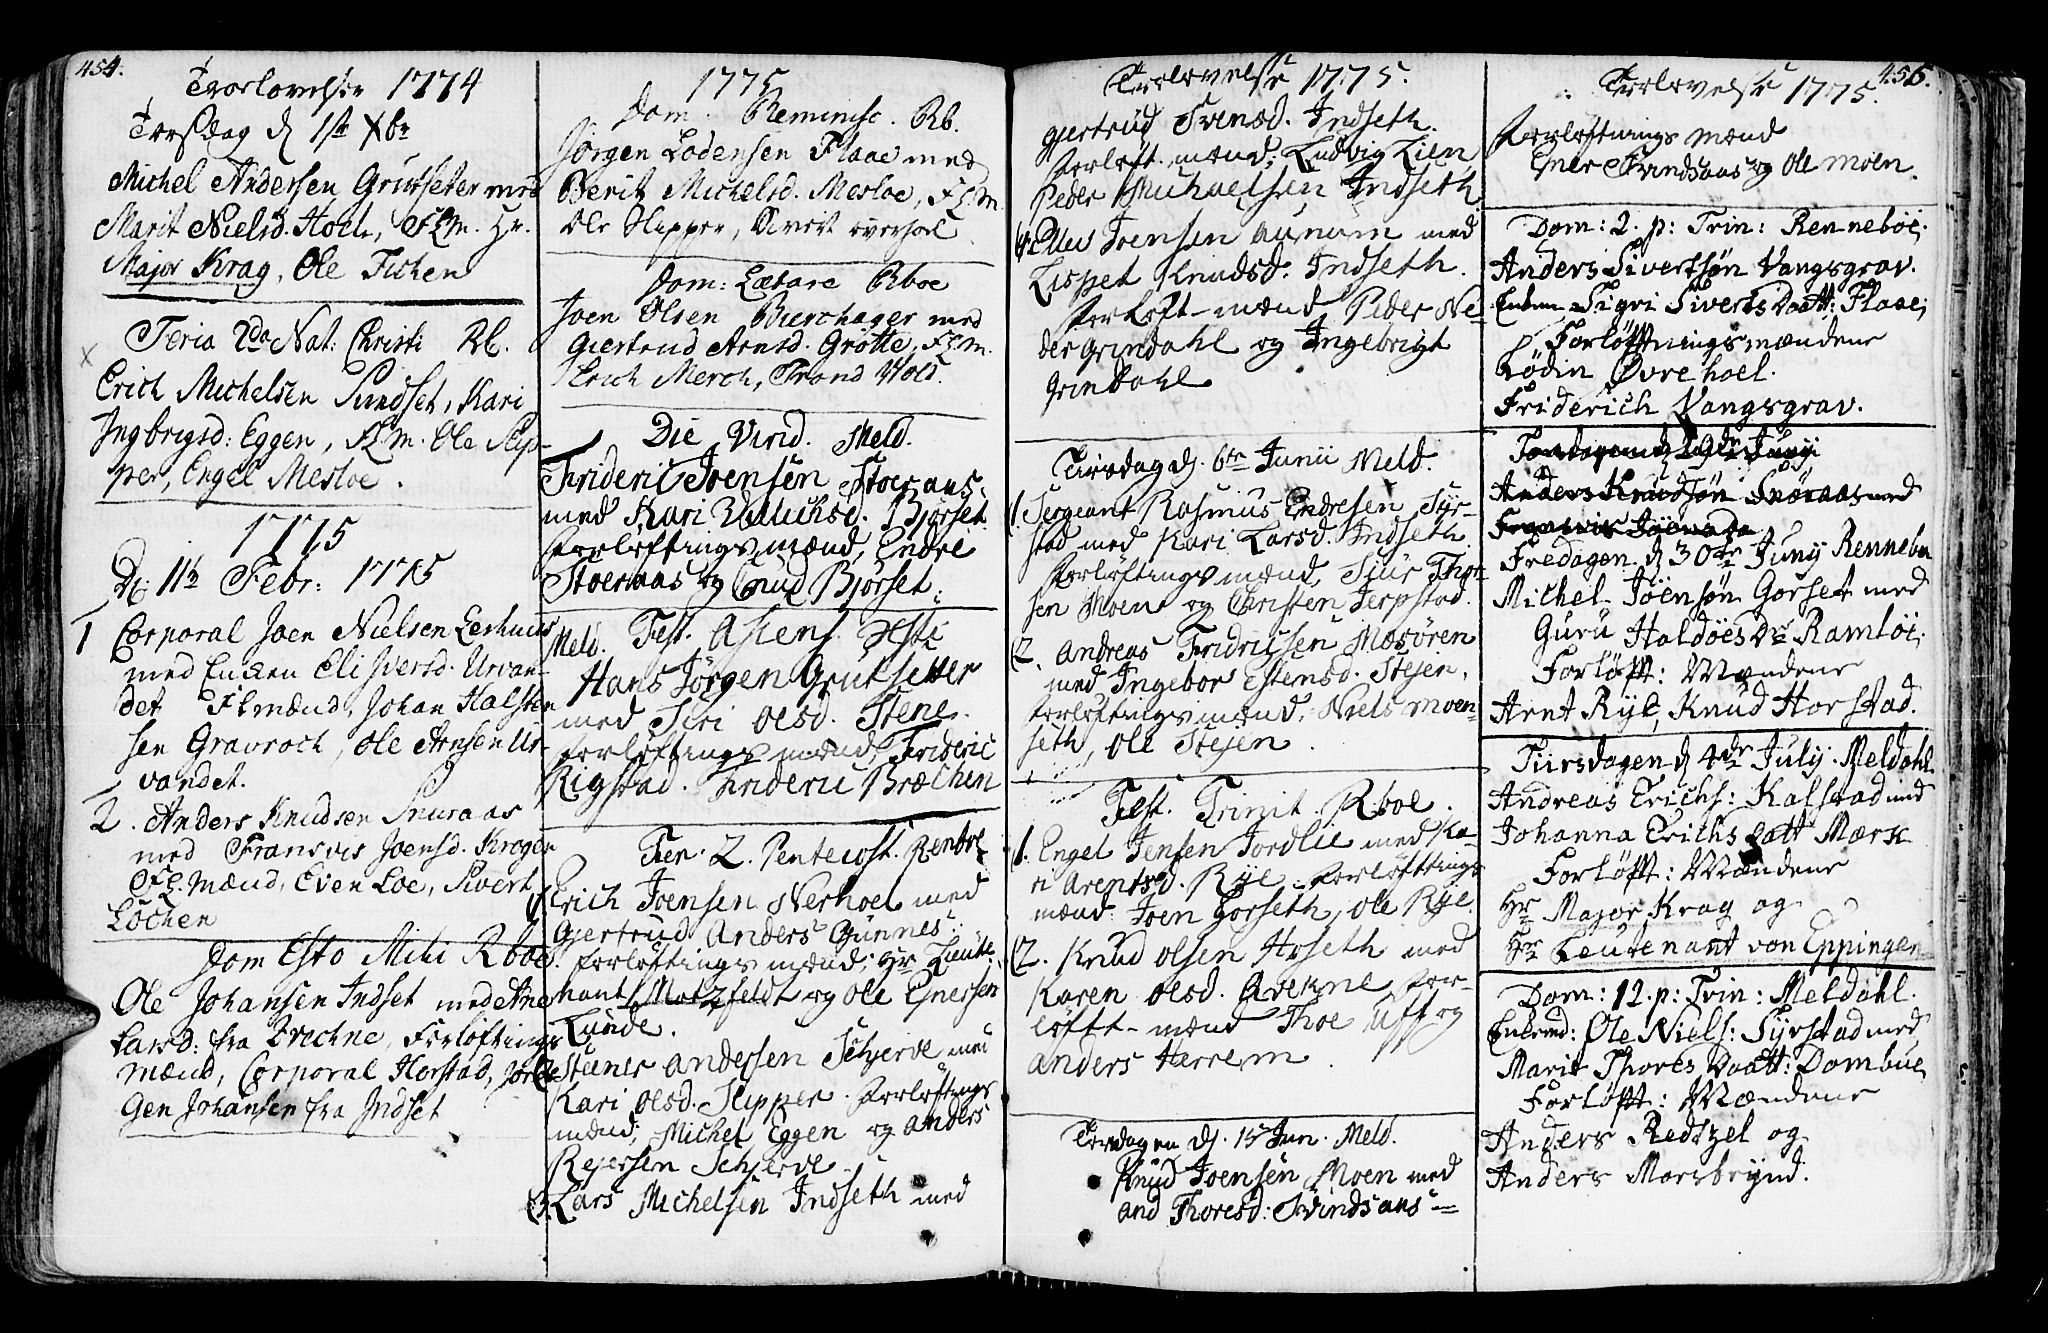 454.
Troelovelser 1774
Torsdag d 1ste Xbr
Michel Andersen Grutsetter med
Marit Nielsd. Hoel, F.L.M. Hr.
Major Krag, Ole Fichen
Feria 2da Nat: Christi Rb.
Erich Michelsen Sundset, Kari
Ingbrigsd: Eggen, F.L.M. Ole Slip-
per, Engel Mesloe.
1775
D: 11te Febr: 1775
1 Corporal Joen Nielsen Lerhuus
med Enken Eli Iversd. Urvan-
det Flmænd, Johan Halsten
sen Gravroch, Ole Arnsen Ur-
vandet.
2. Anders Knudsen Snuraas
med Fransvis Joensd. Krogen
F.L.mænd, Even Loe, Sivert
Löchen
Dom Esto Mihi Rboe
Ole Johansen Indset med Ane
Larsd: fra Drechne, Forløftnings
mænd, Corporal Horstad, Jör-
gen Johansen fra Indset
1775
Dom. Reminisc. Rb.
Jörgen Lodensen Flaae med
Berit Michelsd. Mesloe, F.L.M.
Ole Slipper, Sivert Överhoel
Dom: Lætare Rboe
Joen Olsen Bierchager med
Giertrud Arnsd. Grötte, F.L.M.
Erich Merch, Trond Hold.
Die Virid. Meld.
Frideric Joensen Stoeraas
med Kari Michelsd. Bjørset
Forløftings mænd, Endre
Stoeraas og Cnud Bjørset.
Meld. Fest. Ascens. Xsti
Hans Jørgen Grutsetter
med Siri Olsd. Stene.
forløftings mænd, Frideric
Rigstad. Frideric Bræchen
Fer. 2. Pentecost. Renboe
1. Erich Joensen Nerhoel med
Gjertrud Anders Gunnes:
forløftings mænd, Hr. Lieute-
nant Motzfeldt og Ole Enersen
Lunde.
2. Steiner Andersen Schjerve med
Kari Olsd. Slipper. Forløftings
mænd, Michel Eggen og Anders
Rejersen Schjerve.
3. Lars Michelsen Indseth med
Trolovelse 1775.
Gjertrud Svensd. Indseth.
Forløft. mænd, Ludvig Lien
Peder Michaelsen Indseth
4. Ellus Joensen Aunum med
Lispet Knudsd. Indseth.
Forløft-mænd Peder Ne-
der Grindahl og Ingebrigt
Grindahl
Tirsdag d. 6te Junii Meld.
1. Sergeant Rasmus Endresen Syr-
stad med Kari Larsd. Indseth.
Forløftings mænd, Siur Thor-
sen Moen og Christen Jerpstad.
2. Andreas Fridricsen Mosøren
med Ingebor Estensd. Stejen,
forløftings mænd, Niels Moen-
seth, Ole Stejen.
Fest. Trinit. Rboe.
1. Engel Jensen Jordlie med Ka-
ri Arentsd. Rÿe. Forløftings
mænd: Joen Gorseth, Ole Rÿe.
2. Knud Olsen Hoseth med
Karen Olsd. Avekne, For-
løft-mænd Thoe Uft og
Anders Harrem.
Torsdagen d. 15 Jun. Meld.
Knud Joensen Moen med
And Thoresd: Svindsaas
455.
Trolovelse 1775.
Forløftnings mænd
Ener Svindsaas og Ole Moen.
Dom: 2. p: Trin: Renneboe;
Anders Sivertsøn Vangsgrav.
Enken Sigri Siverts Daatt: Flaae;
Forløftningsmændene
Lødin Øvrehoel.
Friderich Vangsgrav.
Torsdagen d 29de Junij
Anders Knudsøn Snöraas med
Fredagen d 30te Junij Rennebu
Michel Joensøn Gorset med
Guru Haldoes Dr Ramloe;
Forløft: Mændene
Arnt Rÿe, Knud Horstad.
Tiirsdagen d 4de July. Meldahl
Andreas Erichs: Kalstad med
Johanna Erichs Datt Mærk
Forløft: Mændene
Hr Major Krag og
Hr Leutenant von Eppingen
Dom: 12. p: Trin: Meldahl.
Enkemd: Ole Niels: Syrstad med
Marit Thores Daatt: Dombue,
Forløft: Mændene
Anders Redtzel og
Anders Morsbrynd.